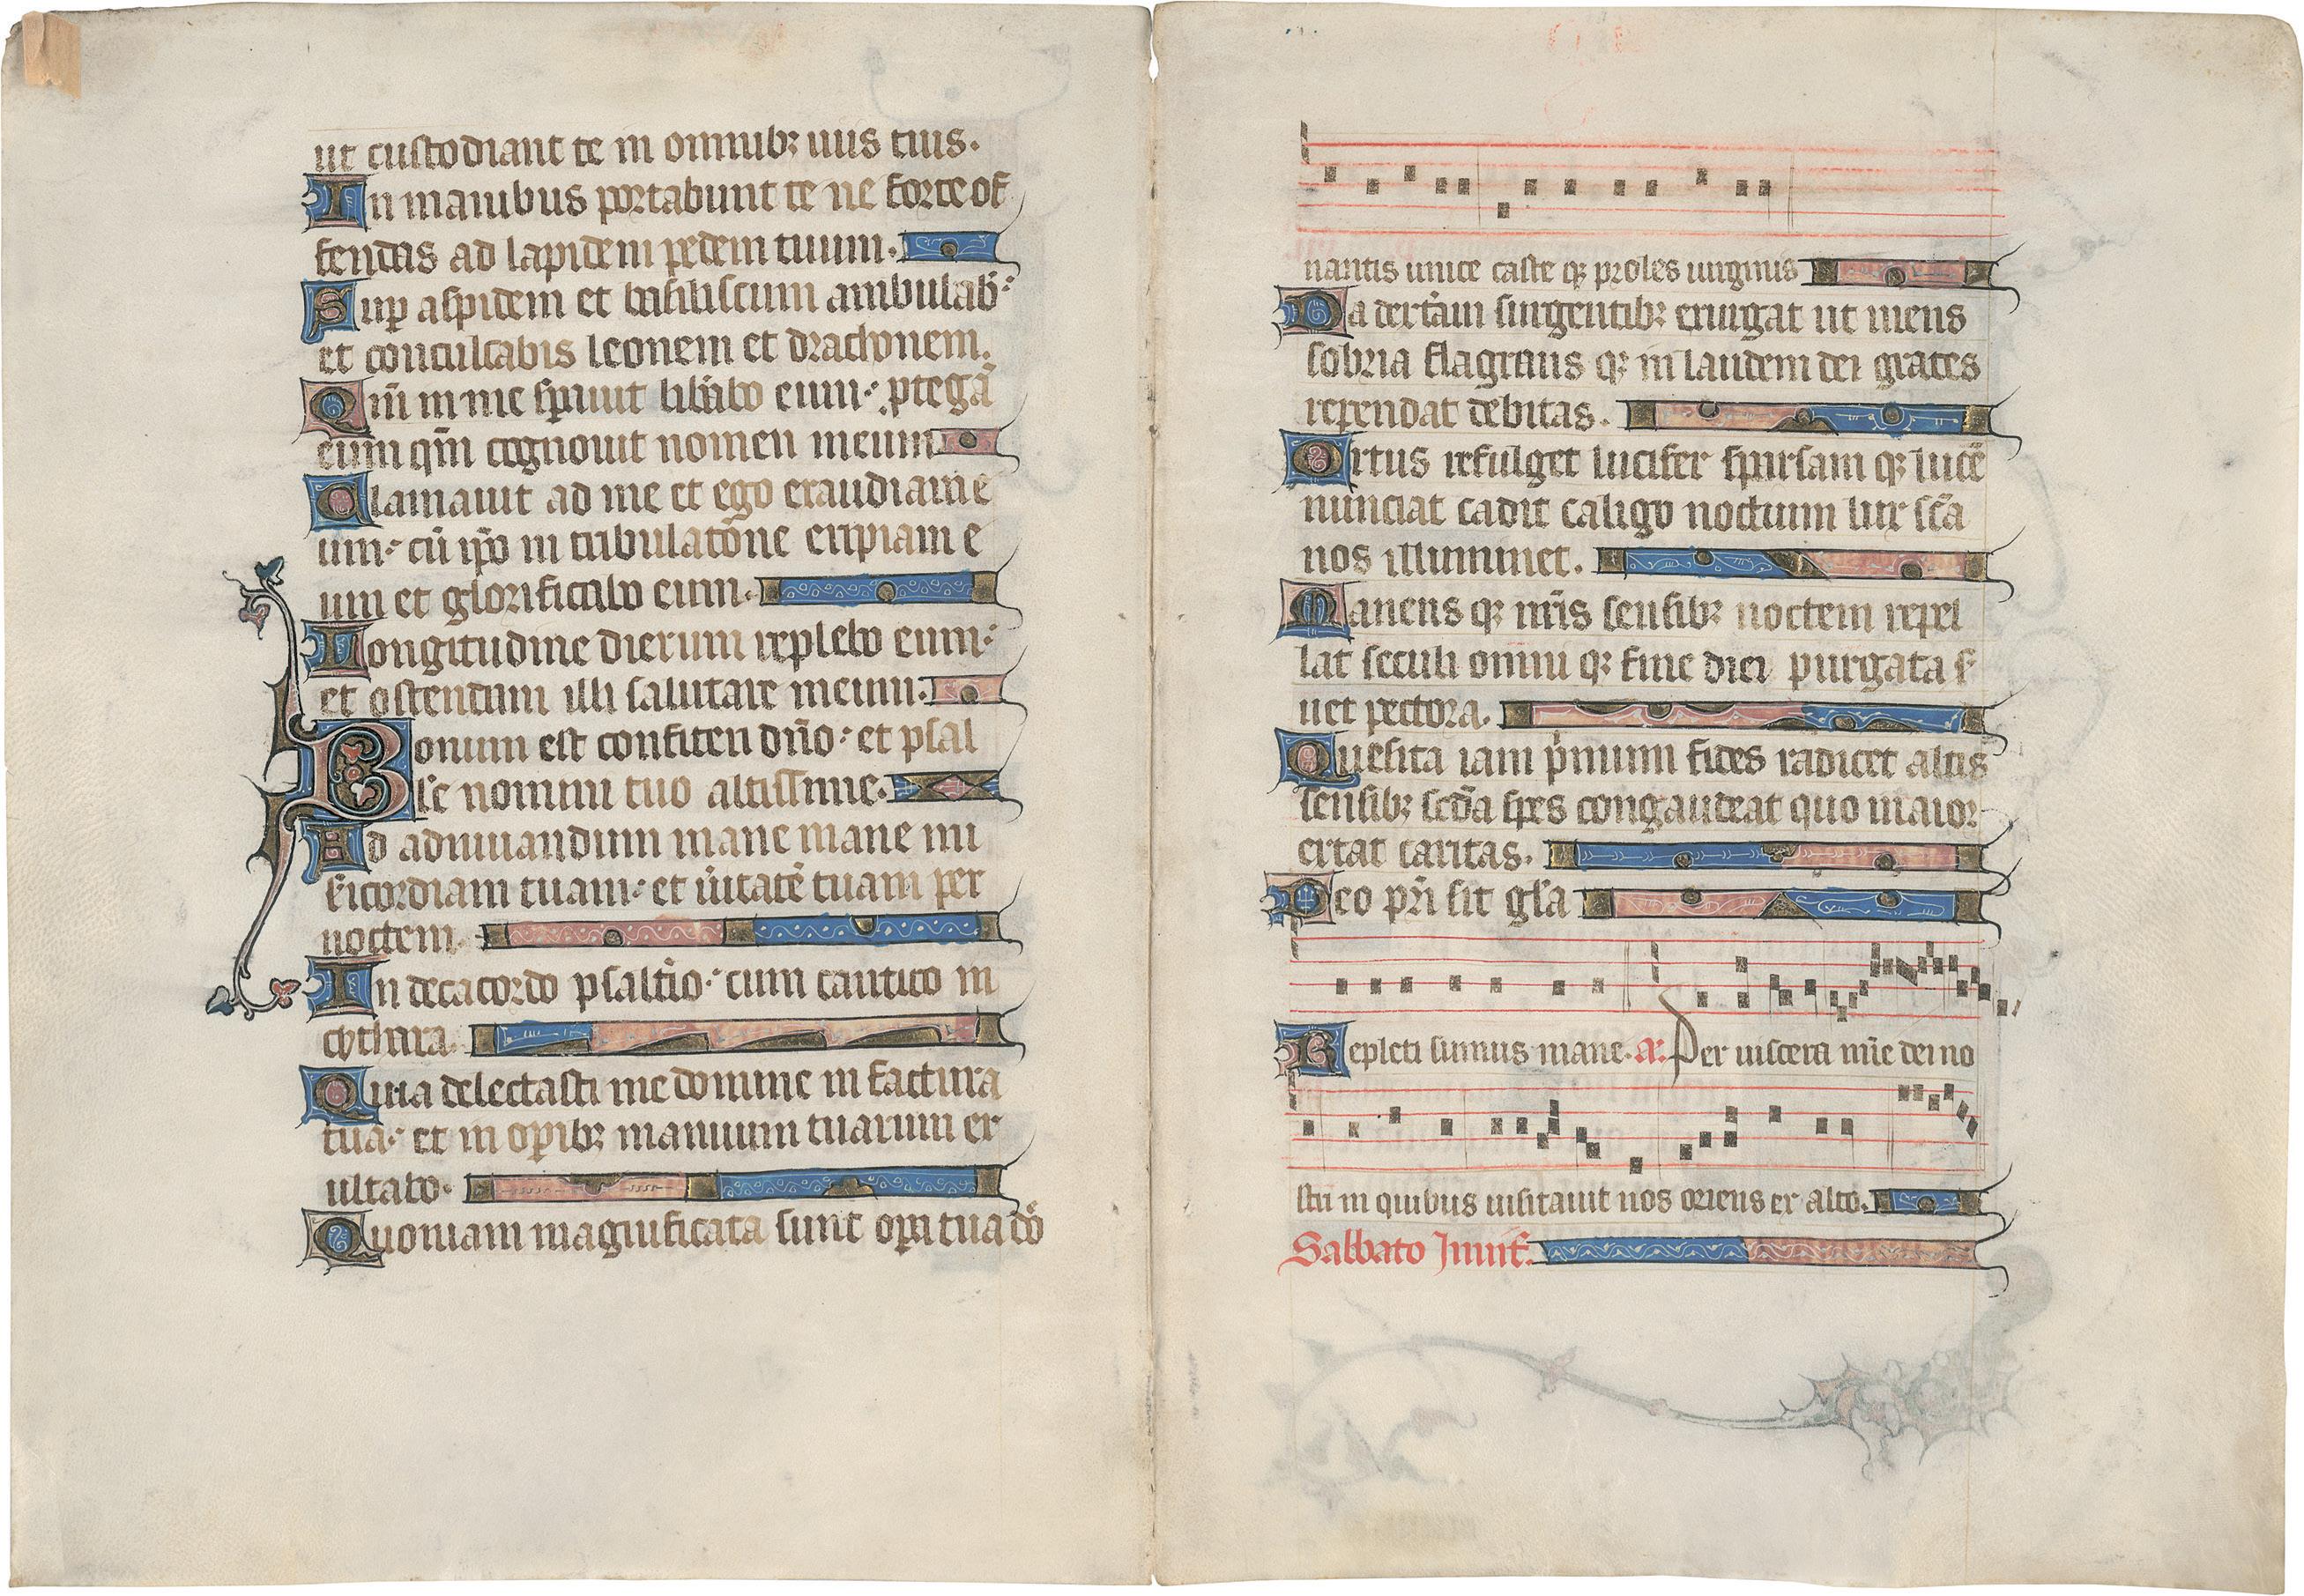 ut custodiant te in omnibꝫ uiis tuis.
In manibus portabunt te ne forte of
fendas ad lapidem pedem tuum.
Suꝑ aspidem et basiliscum ambulab᷑:
et conculcabis leonem et drachonem.
Qm̄ in me sꝑauit lib̾abo eum: ꝓtegā
eum qm̄ cognouit nomen meum
Clamauit ad me et ego exaudiam e
um: cū ip̄o in tribulatōne eripiam e
um et glorificabo eum.
Longitudine dierum replebo eum:
et ostendam illi salutare meum:
Bonum est confiteri dn̄o: et psal
le nomini tuo altissime.
Ad adnuiandum mane mane mi
sericordiam tuam: et u̾itatē tuam per
noctem.
In decacordo psalt̾io: cum cantico in
cythara.
Quia delectasti me domine in factura
tua: et in oꝑibꝫ manuum tuarum ex
ultabo.
Quoniam magnificata sunt oꝑa tua dō
nantis unice caste qꝫ proles uirginis
Da dext̾am surgentibꝫ exurgat ut mens
sobria flagrans qꝫ in laudem dei grates
rependat debitas.
Ortus refulget lucifer sparsam qꝫ lucē
nunciat cadit caligo noctium lux sc̄a
nos illuminet.
Manens qꝫ nr̄is sensibꝫ noctem repel
lat seculi omni qꝫ fine diei purgata s̾
uet pectora.
Quesita iam p̾mum fides radicet altis
sensibꝫ sc̄da spes congaudeat quo maior
extat caritas.
Deo pr̄i sit gl̄a
Repleti sumus mane. a. Per uiscera mīe dei no
stri in quibus uisitauit nos oriens ex alto.
Sabbato Inuit̾.